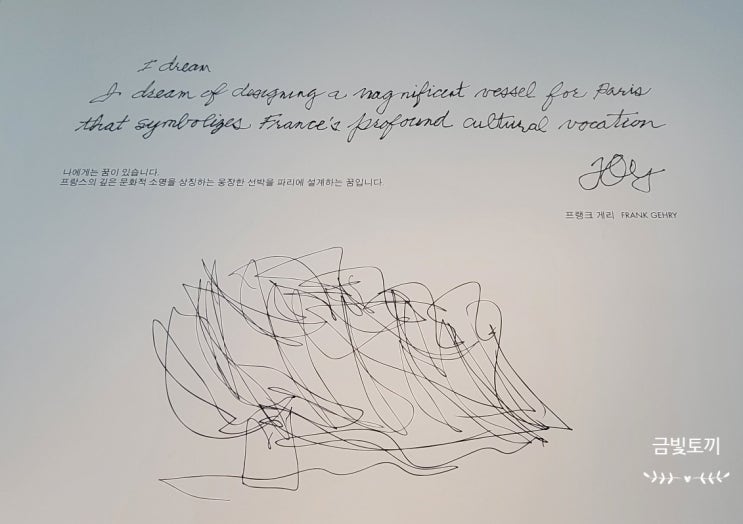 I dream
I dream of designing a magnificent vessel for Paris
that symbolizes France's profound cultural vocation
나에게는 꿈이 있습니다.
프랑스의 깊은 문화적 소명을 상징하는 웅장한 선박을 파리에 설계하는 꿈입니다.
프랭크 게리 FRANK GEHRY
금빛토끼